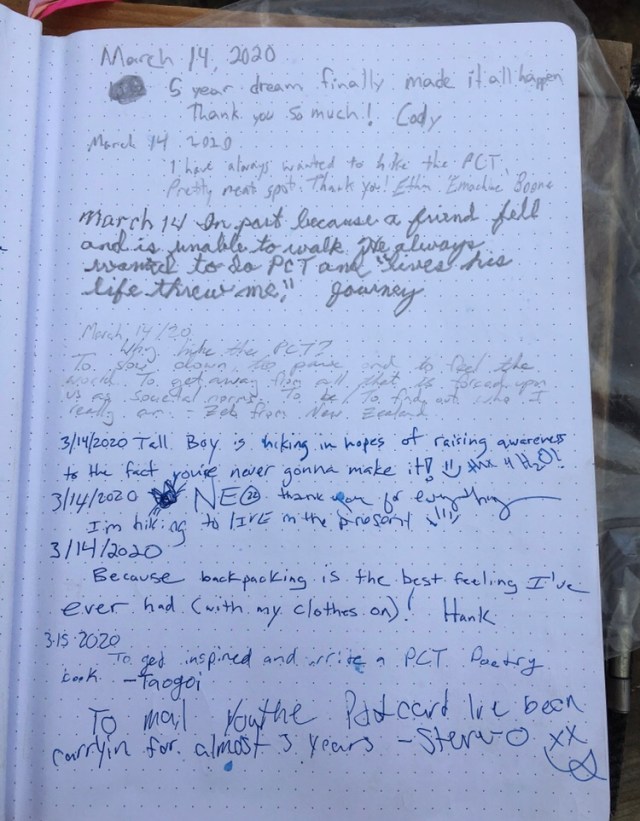 March 14, 2020
5 year dream finally made it all happen
Thank you so much! Cody
March 14 2020
I have always wanted to hike the PCT.
Pretty neat spot. Thank you! Ethan "Emachine" Boone
March 14 In part because a friend fell
and is unable to walk. He always
wanted to do PCT and "lives his
life threw me," Journey
March 14/20
Why hike the PCT?
To slow down, to pause and to feel the
world. To get away from all that is forced upon
us as societal norms. To be. To find out who I
really am. - Zeb from New Zealand
3/14/2020 Tall Boy is hiking in hopes of raising awareness
to the fact you're never gonna make it! thx 4 H2O!
3/14/2020 NEO 22 thank you for everything
I'm hiking to LIVE in the present !!!
3/14/2020
Because backpacking is the best feeling I've
ever had (with my clothes on)! Hank
3.15.2020
To get inspired and write a PCT Poetry
book. - Taogoi
To mail you the Postcard I've been
carryin for almost 3 years - Steve-O XX